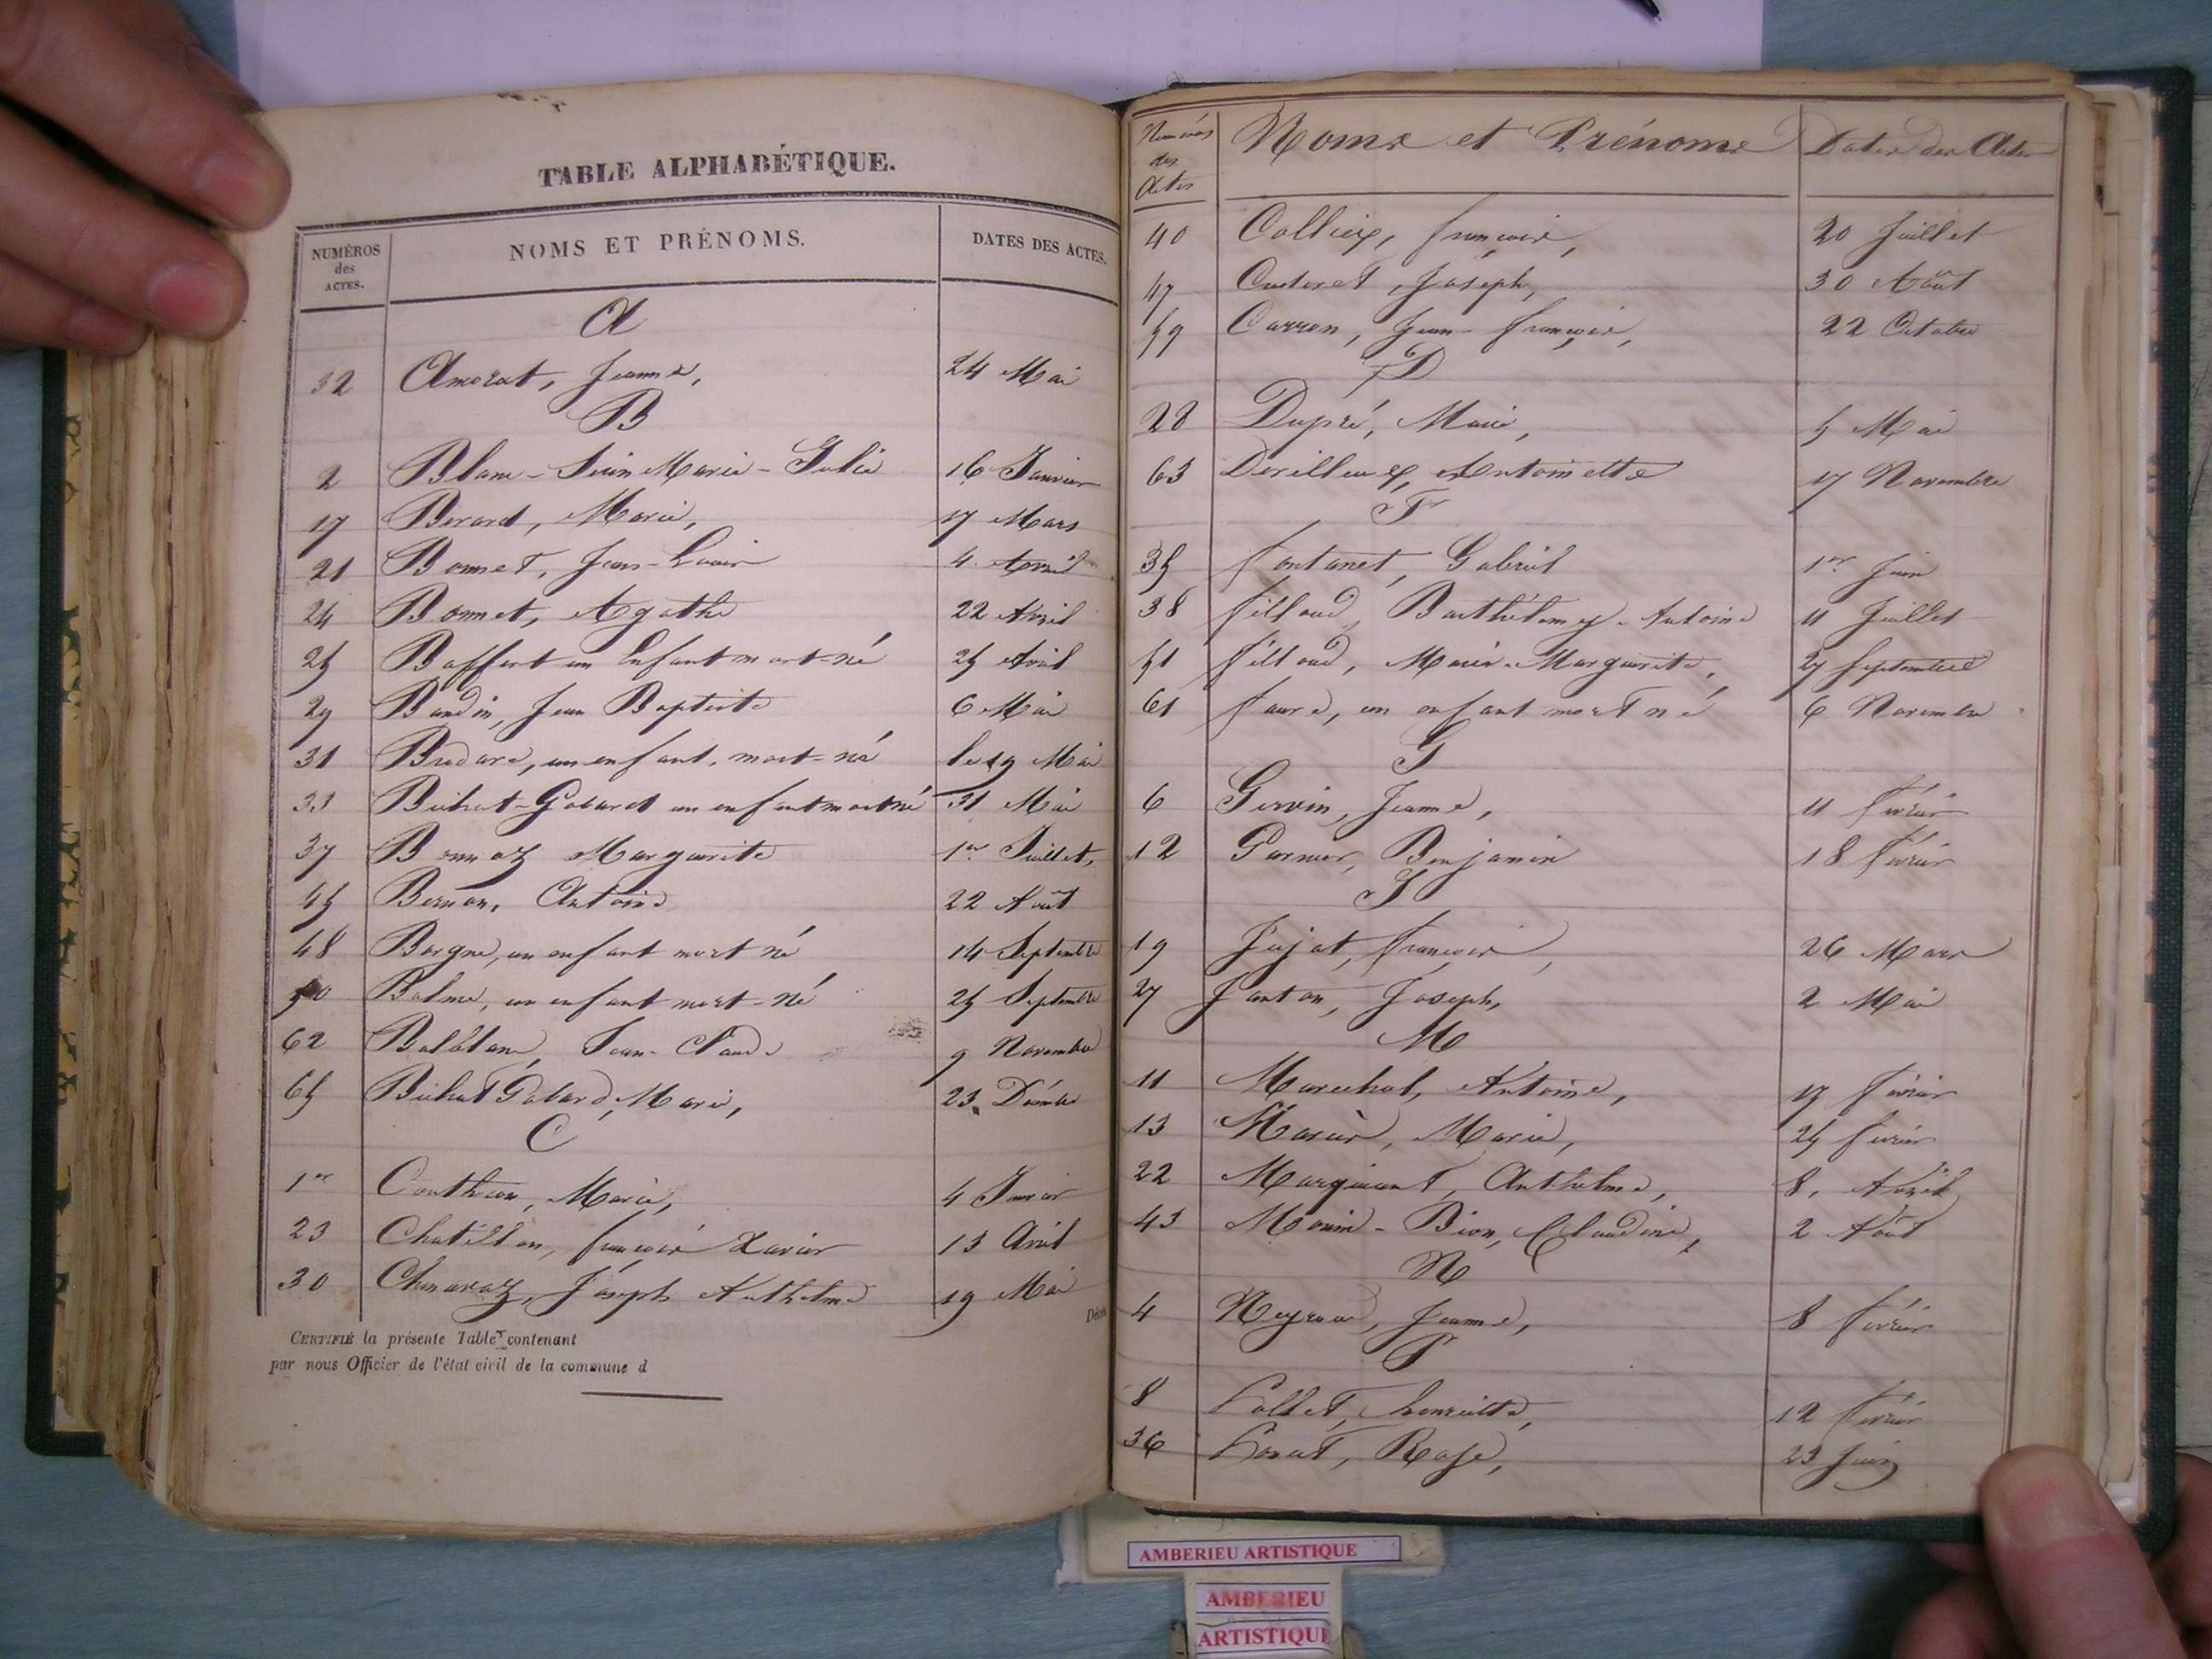 TABLE ALPHABÉTIQUE.
NUMÉROS des ACTES. NOMS ET PRÉNOMS. DATES DES ACTES.
A
32 Amorat, Jeanne, 24 Mai
B
2 Blanc - Marie - Julie 16 Janvier
17 Berard, Marie, 17 Mars
21 Bonnet, Jean-Louis 4 Avril
24 Bonnet, Agathe 22 Avril
25 Baffert un Enfant mort-né 25 Avril
29 Baudin, Jean Baptiste 6 Mai
31 un enfant, mort-né le 19 Mai
33 Bichat-Gobard un enfant mort né 31 Mai
37 Bonnaz Marguerite 1er Juillet,
45 Bernon, Antoine 22 Août
48 Borgne, un enfant mort né 14 Septembre
50 Balme, un enfant mort-né 25 Septembre
62 Balblanc, Jean-Claude 9 Novembre
65 Bichat Gobard, Marie, 23 Décembre
C
1er Marie, 4 Janvier
23 Chatillon, françois Xavier 13 Avril
30 Chanavaz, Joseph Anthelme 19 Mai
Décès
CERTIFIÉ la présente Table contenant
par nous Officier de l'état civil de la commune d
Numéros des Actes Noms et Prénoms Dates des Actes
40 Colliex, françois, 20 Juillet
47 Joseph, 30 Août
59 Carron, Jean-françois, 22 Octobre
D
28 Dupré, Marie, 5 Mai
63 Derilleux, Antoinette 17 Novembre
F
35 fontanet, Gabriel 1er Juin
38 filloud, Barthélemy-Antoine 11 Juillet
51 filloud, Marie-Marguerite, 27 Septembre
61 faure, un enfant mort né 6 Novembre
G
6 Gervin, Jeanne, 11 février
12 Garnier, Benjamin 18 février
J
19 Jujat, françois, 26 Mars
27 Janton, Joseph, 2 Mai
M
11 Marechal, Antoine, 17 février
13 Marie, 25 février
22 Anthelme, 8, Avril
43 Monin-Bion, Claudine, 2 Août
N
4 Neyroud, Jeanne, 8 février
P
8 Pollet, henriette, 12 février
36 Rose, 23 Juin
AMBERIEU ARTISTIQUE
AMBERIEU
ARTISTIQUE